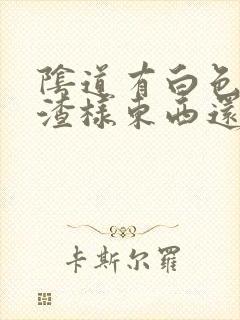 陰道有白色
渣樣東西還
卡斯尔羅